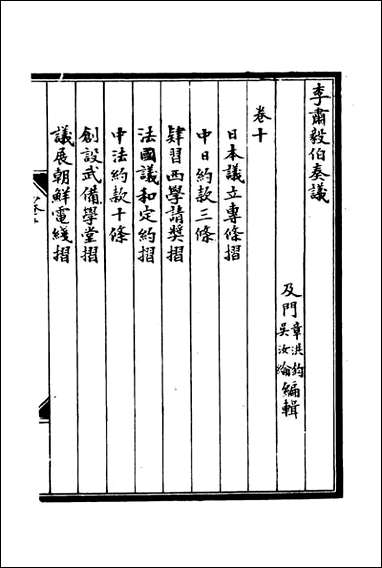 李肅毅伯奏議
及門章洪鈞吳汝綸編輯
卷十
日本議立專條摺
中日約款三條
肄習西學請奬摺
法國議和定約摺
中法約款十條
創設武備學堂摺
議展朝鮮電綫摺